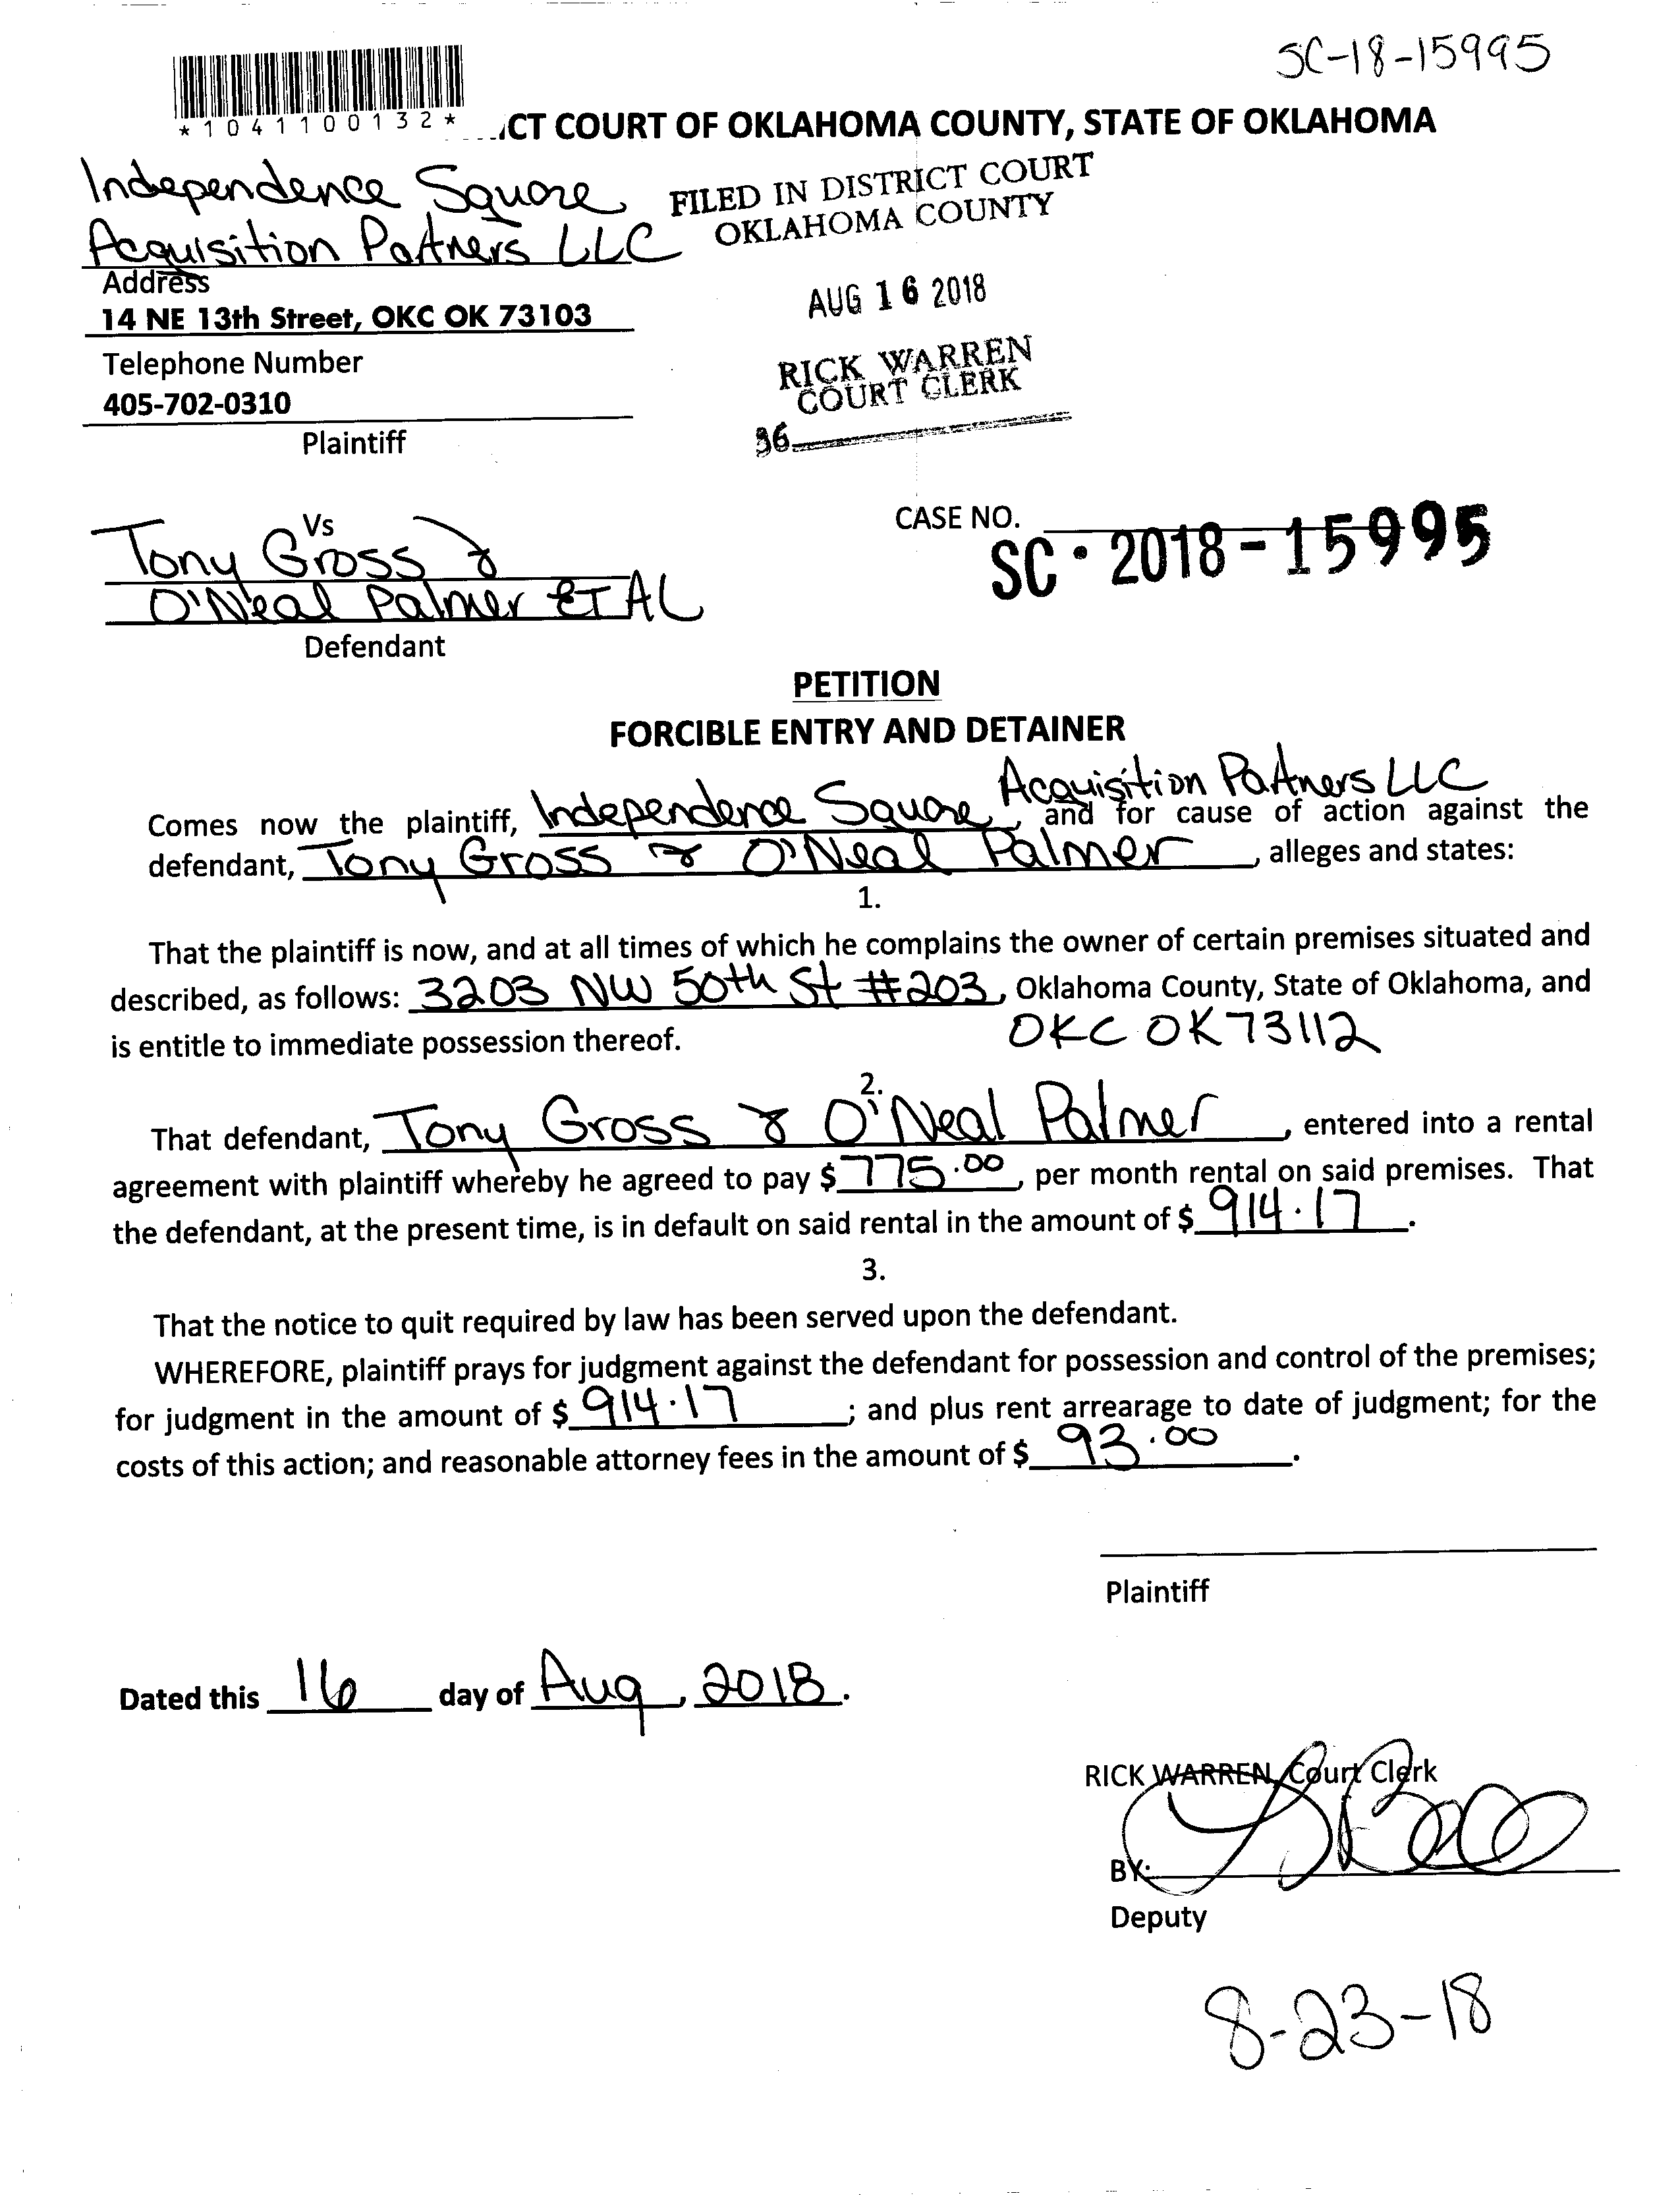 SC-18-15995
*1041100132*
ICT COURT OF OKLAHOMA COUNTY, STATE OF OKLAHOMA
Independence Square
Acquisition Partners LLC
FILED IN DISTRICT COURT
OKLAHOMA COUNTY
Address
14 NE 13th Street, OKC OK 73103
AUG 16 2018
Telephone Number
405-702-0310
RICK WARREN
COURT CLERK
Plaintiff
36
Vs
Tony Gross &
O'Neal Palmer ET AL
Defendant
CASE NO.
SC · 2018-15995
PETITION
FORCIBLE ENTRY AND DETAINER
Comes now the plaintiff, Independence Square Acquisition Partners LLC, and for cause of action against the
defendant, Tony Gross & O'Neal Palmer, alleges and states:
1.
That the plaintiff is now, and at all times of which he complains the owner of certain premises situated and
described, as follows: 3203 NW 50th St #203, Oklahoma County, State of Oklahoma, and
is entitle to immediate possession thereof. OKC OK 73112
2.
That defendant, Tony Gross & O'Neal Palmer, entered into a rental
agreement with plaintiff whereby he agreed to pay $ 775.00, per month rental on said premises. That
the defendant, at the present time, is in default on said rental in the amount of $ 914.17.
3.
That the notice to quit required by law has been served upon the defendant.
WHEREFORE, plaintiff prays for judgment against the defendant for possession and control of the premises;
for judgment in the amount of $ 914.17; and plus rent arrearage to date of judgment; for the
costs of this action; and reasonable attorney fees in the amount of $ 93.00.
Plaintiff
Dated this 16 day of Aug, 2018.
RICK WARREN, Court Clerk
BY:
Deputy
8-23-18